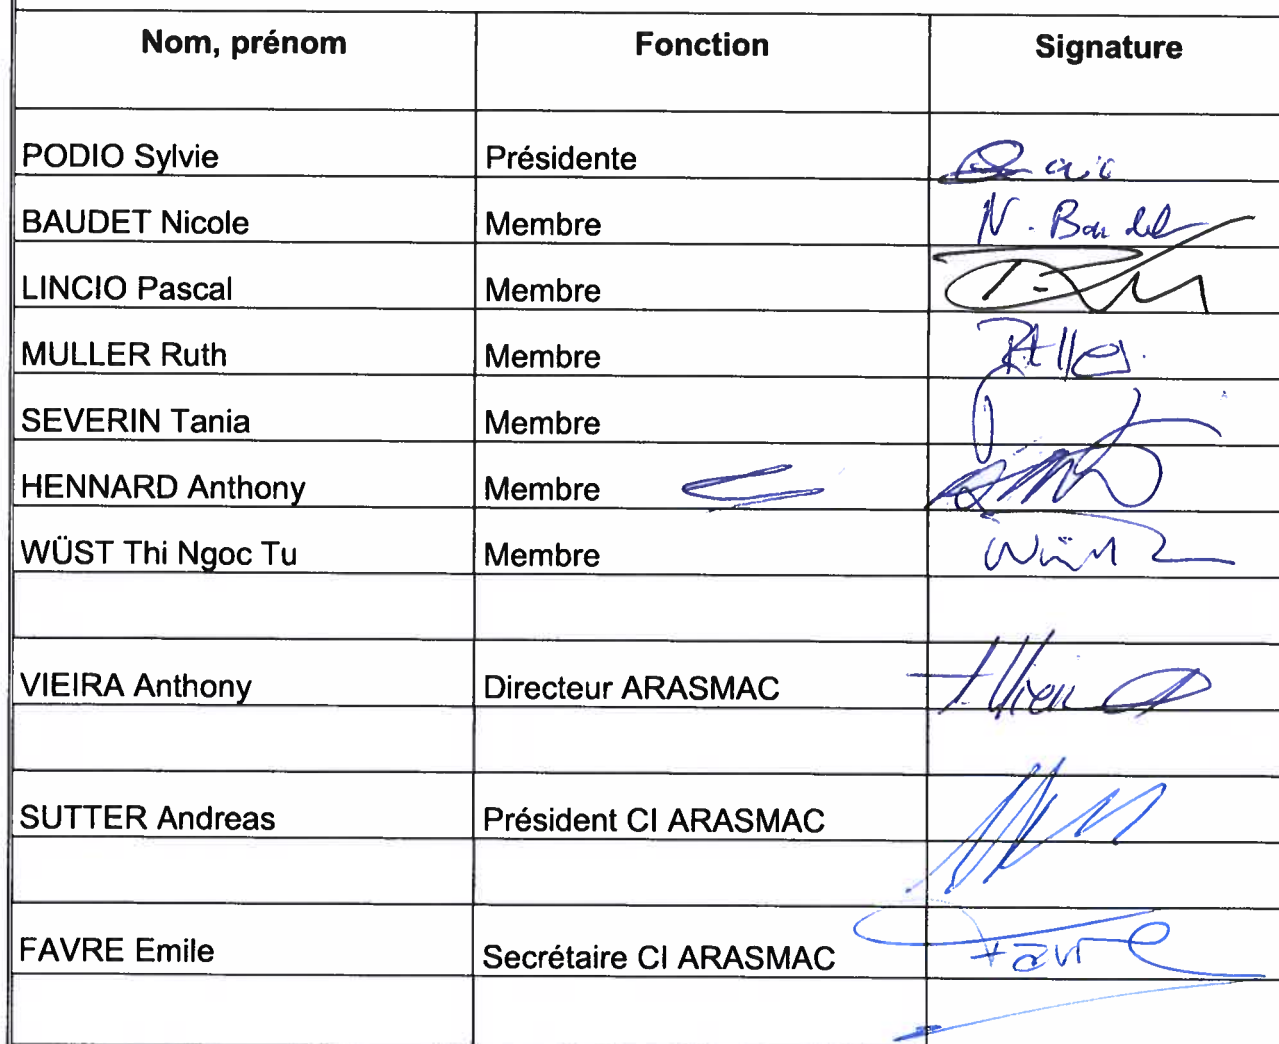 Nom, prénom Fonction Signature
PODIO Sylvie Présidente
BAUDET Nicole Membre N. Baudet
LINCIO Pascal Membre
MULLER Ruth Membre
SEVERIN Tania Membre
HENNARD Anthony Membre
WÜST Thi Ngoc Tu Membre Wüst
VIEIRA Anthony Directeur ARASMAC
SUTTER Andreas Président CI ARASMAC
FAVRE Emile Secrétaire CI ARASMAC Favre